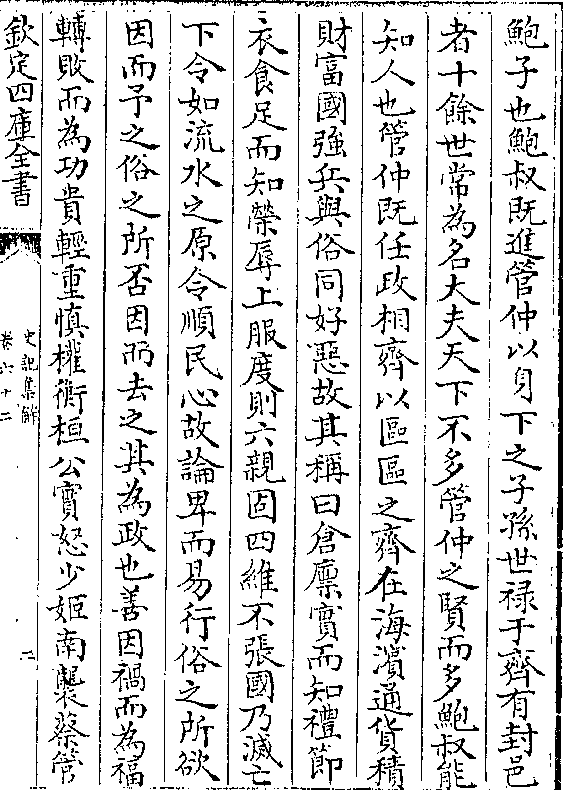 鮑子也鮑叔既進管仲以身下之子孫世禄于齊有封邑
者十餘世常為名大夫天下不多管仲之賢而多鮑叔能
知人也管仲既任政相齊以區區之齊在海濱通貨積
財富國強兵與俗同好惡故其稱曰倉廪實而知禮節
衣食足而知榮辱上服度則六親固四維不張國乃滅亡
下令如流水之原令順民心故論卑而易行俗之所欲
因而予之俗之所否因而去之其為政也善因禍而為福
轉敗而為功貴輕重慎權衡桓公實怒少姬南襲蔡管
欽定四庫全書
史記集解
卷六十二
二